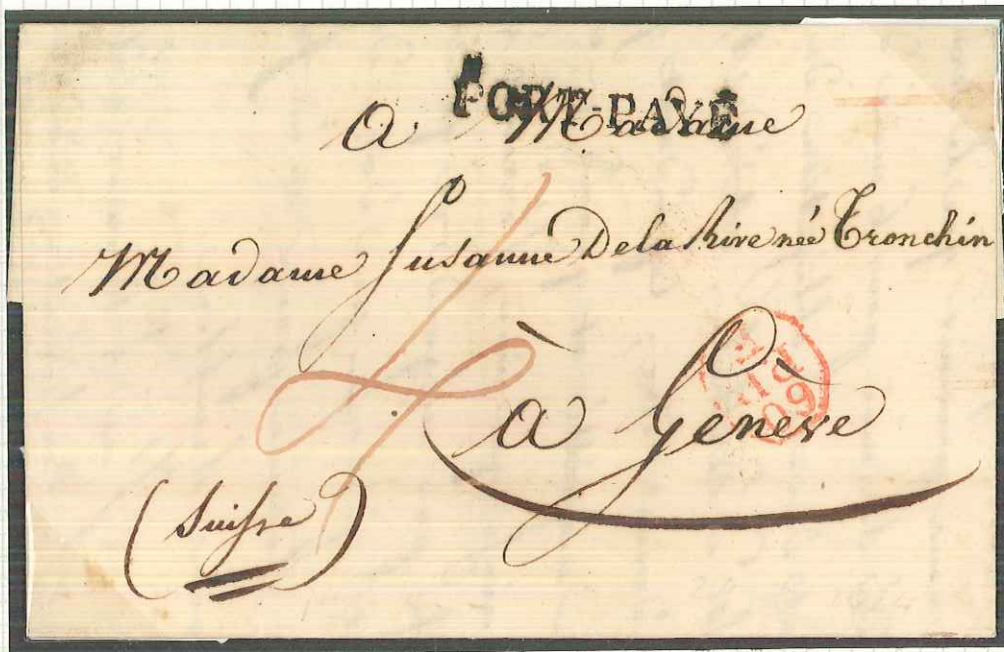 PORT-PAYÉ
a Madame
Madame Susanne De la Rive née Tronchin
à Genève
(Suisse)